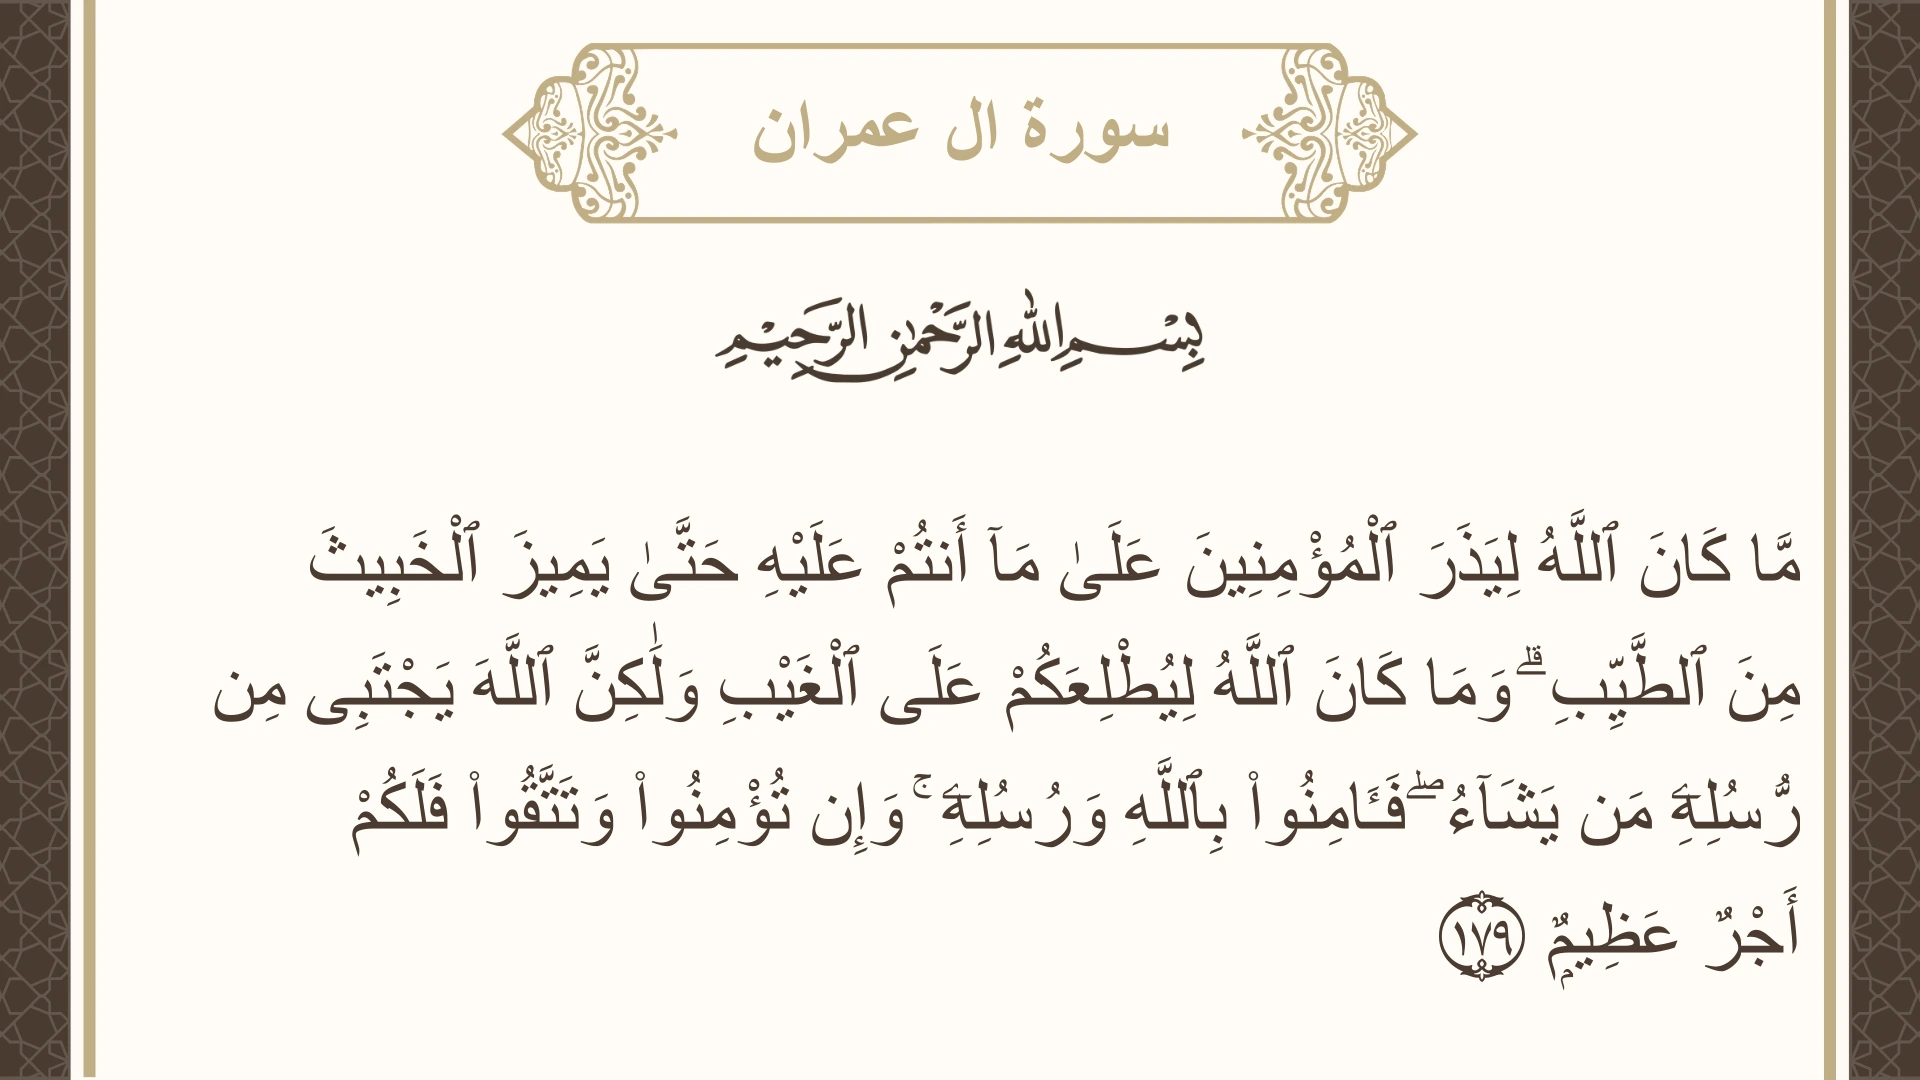 سورة ال عمران
بِسْمِ اللهِ الرَّحْمٰنِ الرَّحِيْمِ
مَّا كَانَ ٱللَّهُ لِيَذَرَ ٱلْمُؤْمِنِينَ عَلَىٰ مَآ أَنتُمْ عَلَيْهِ حَتَّىٰ يَمِيزَ ٱلْخَبِيثَ
مِنَ ٱلطَّيِّبِ ۗ وَمَا كَانَ ٱللَّهُ لِيُطْلِعَكُمْ عَلَى ٱلْغَيْبِ وَلَٰكِنَّ ٱللَّهَ يَجْتَبِى مِن
رُّسُلِهِۦ مَن يَشَآءُ ۖ فَـَٔامِنُوا۟ بِٱللَّهِ وَرُسُلِهِۦ ۚ وَإِن تُؤْمِنُوا۟ وَتَتَّقُوا۟ فَلَكُمْ
أَجْرٌ عَظِيمٌۭ ١٧٩